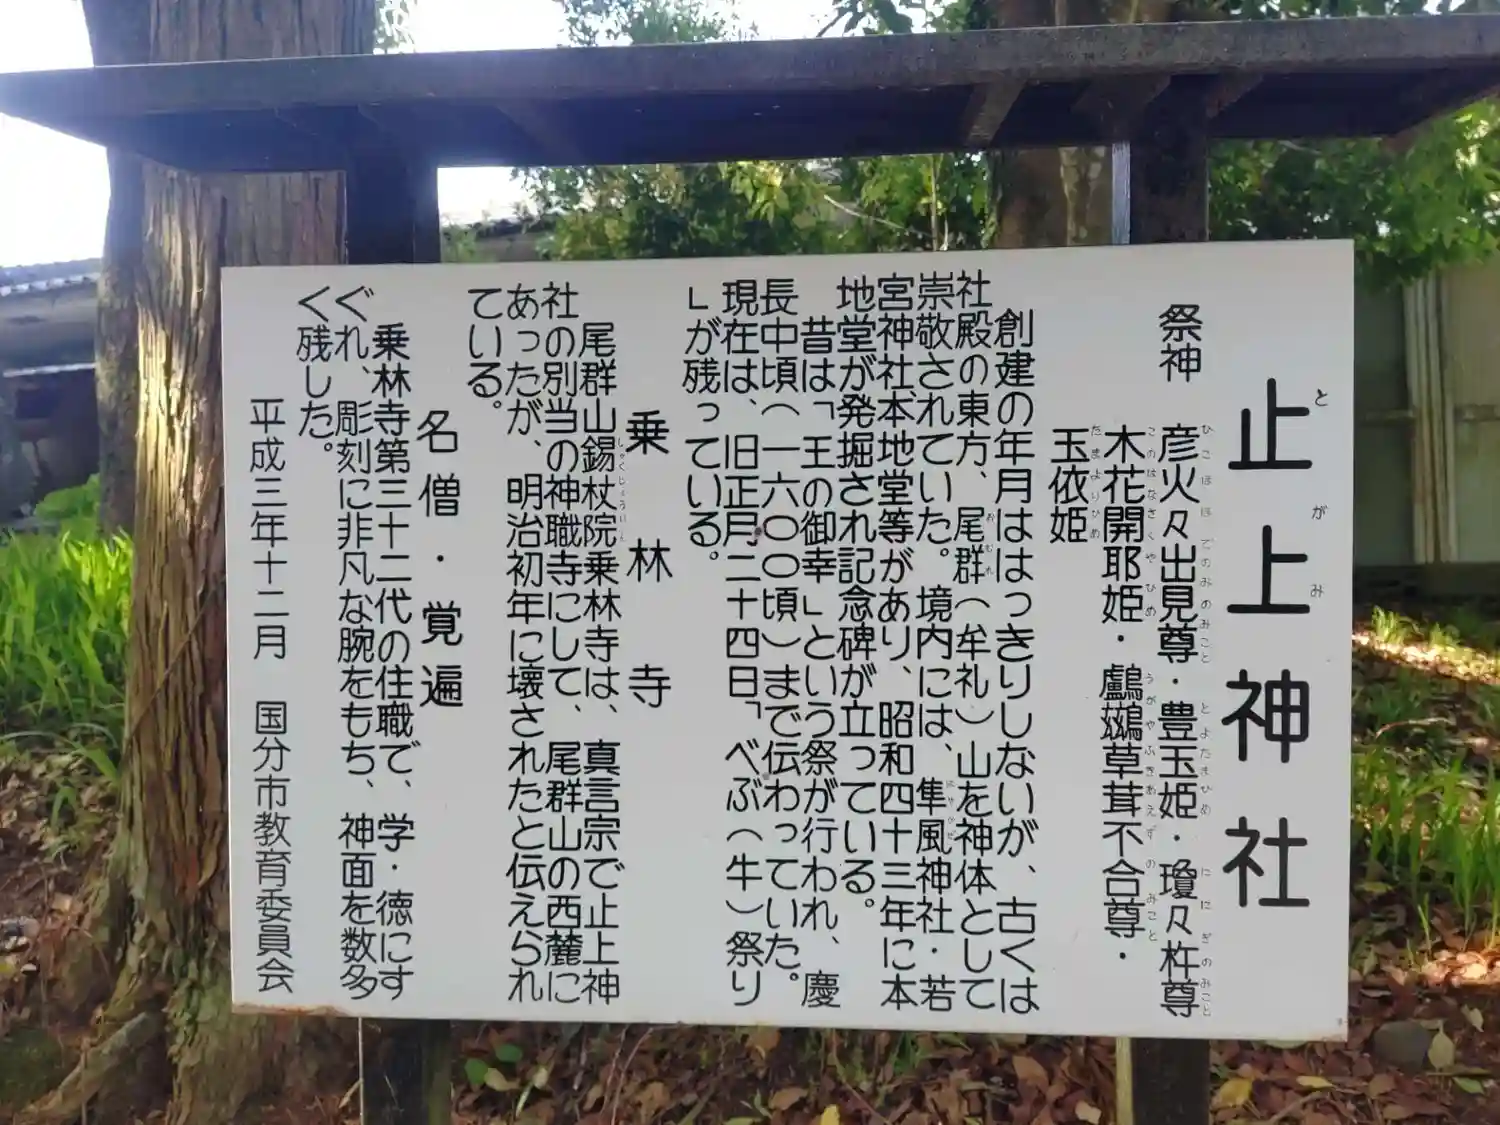 止上神社
とがみ
祭神　彦火々出見尊・豊玉姫・瓊々杵尊
ひこほほでのみのみこと　とよたまひめ　ににぎのみこと
木花開耶姫・鸕鷀草葺不合尊・
このはなさくやひめ　うがやふきあえずのみこと
玉依姫
たまよりひめ
創建の年月ははっきりしないが、古くは
社殿の東方、尾群（牟礼）山を神体として
おむれ
崇敬されていた。境内には、隼風神社・若
はやかぜ
宮神社、本地堂等があり、昭和四十三年に本
地堂が発掘され記念碑が立っている。
昔は「王の御幸」という祭が行われ、慶
長中頃（一六〇〇頃）まで伝わっていた。
現在は、旧正月二十四日「べぶ（牛）祭り
」が残っている。
乗林寺
尾群山錫杖院乗林寺は、真言宗で止上神
しゃくじょういん
社の別当の神職寺にして、尾群山の西麓に
あったが、明治初年に壊されたと伝えられ
ている。
名僧・覚遍
乗林寺第三十二代の住職で、学・徳にす
ぐれ、彫刻に非凡な腕をもち、神面を数多
く残した。
平成三年十二月　国分市教育委員会